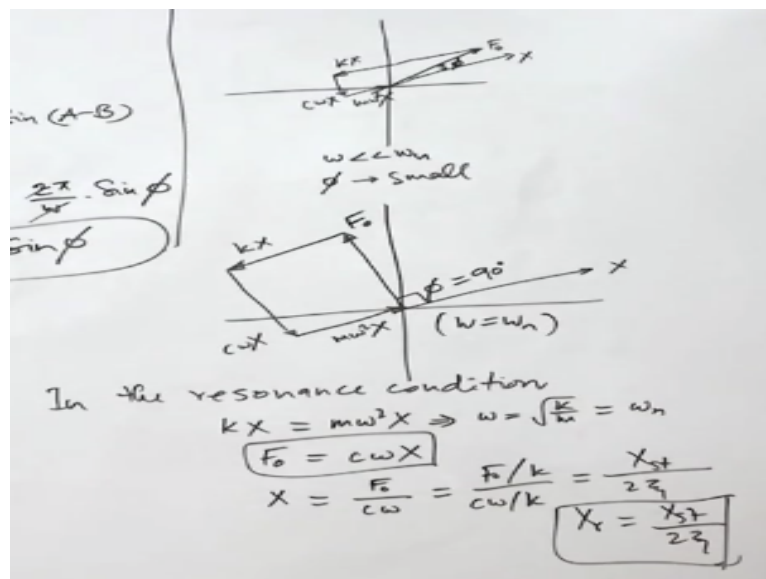 in (A-B)
2π/ω . Sin ϕ
Sin ϕ
kX
F₀
ϕ
X
cωX
mω²X
ω << ωn
ϕ → small
kX
F₀
ϕ = 90°
X
cωX
mω²X
(ω = ωn)
In the resonance condition
kX = mω²X ⇒ ω = √(k/m) = ωn
F₀ = cωX
X = F₀/cω = (F₀/k)/(cω/k) = Xst/2ξ
Xr = Xst/2ξ